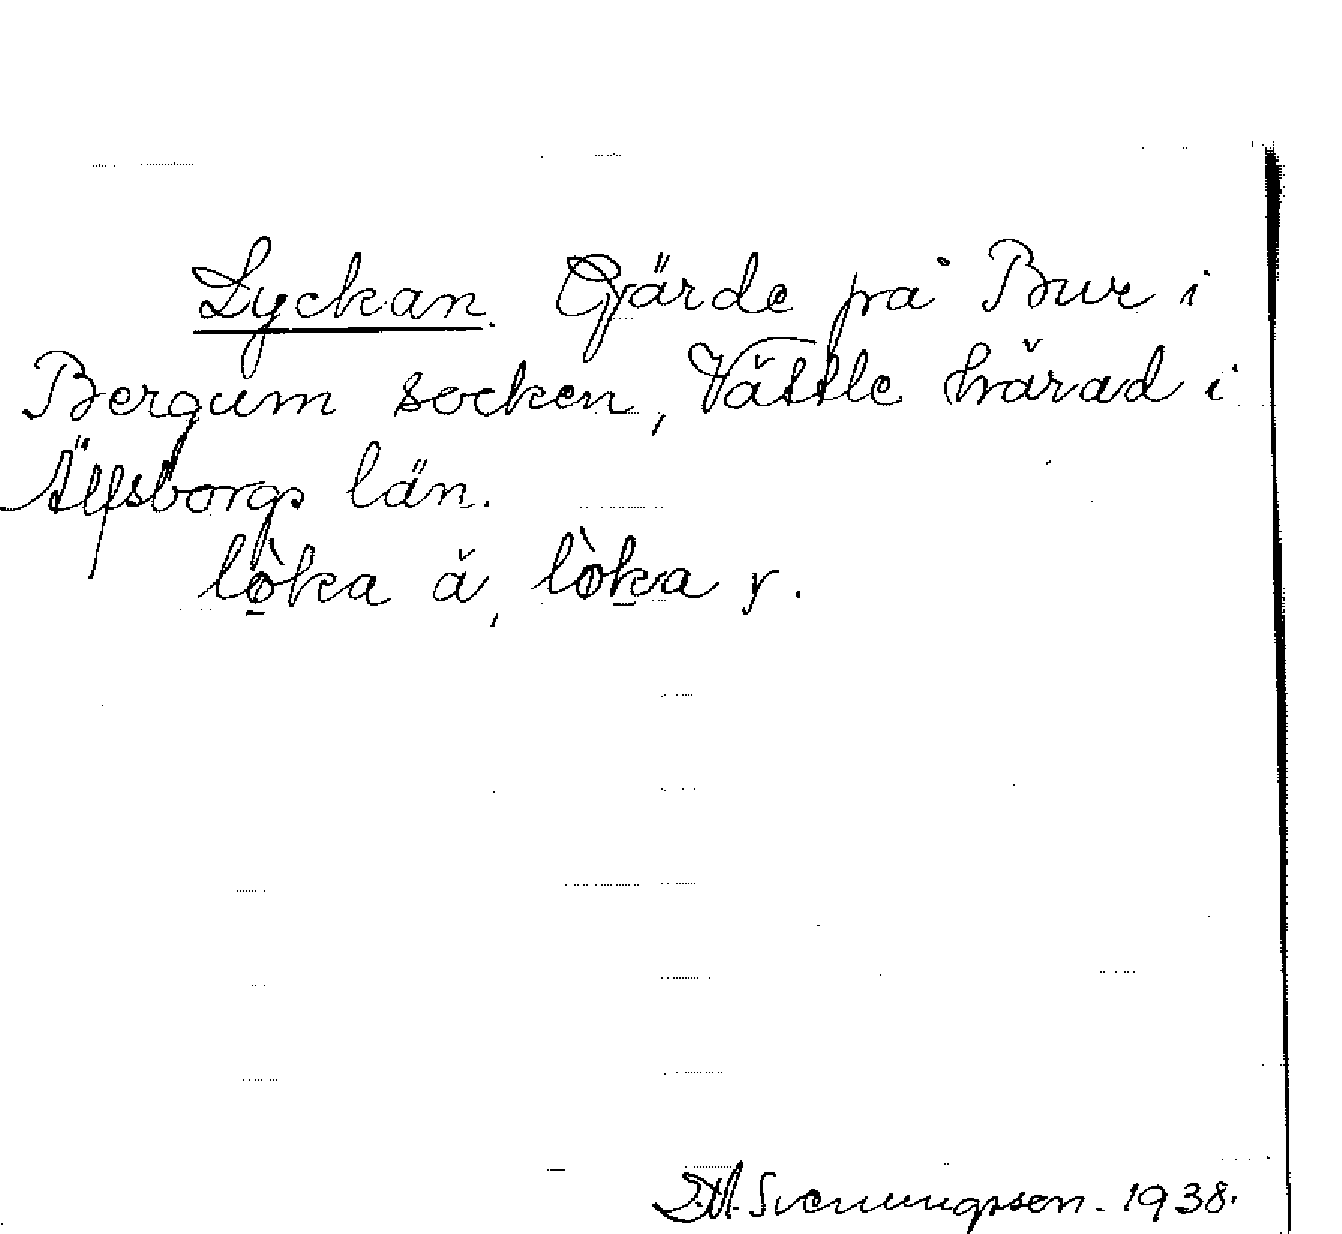 Lyckan. Gärde på Bur i
Bergum socken, Vättle härad i
Älfsborgs län.
lò̱ka ä, lòḵa y.
Svenungsson. 1938.